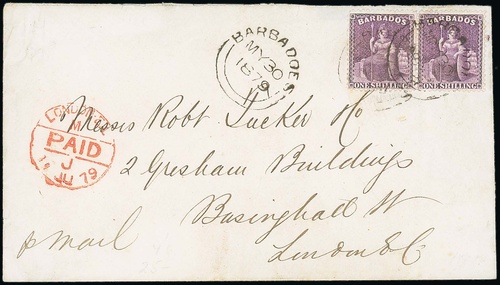 BARBADOS BARBADOS
ONE SHILLING ONE SHILLING
BARBADOES
MY 30
1879
LONDON
M
PAID
J
JU 79
Messrs Robt Tucker & Co
2 Gresham Buildings
Basinghall St
London E.C.
p mail